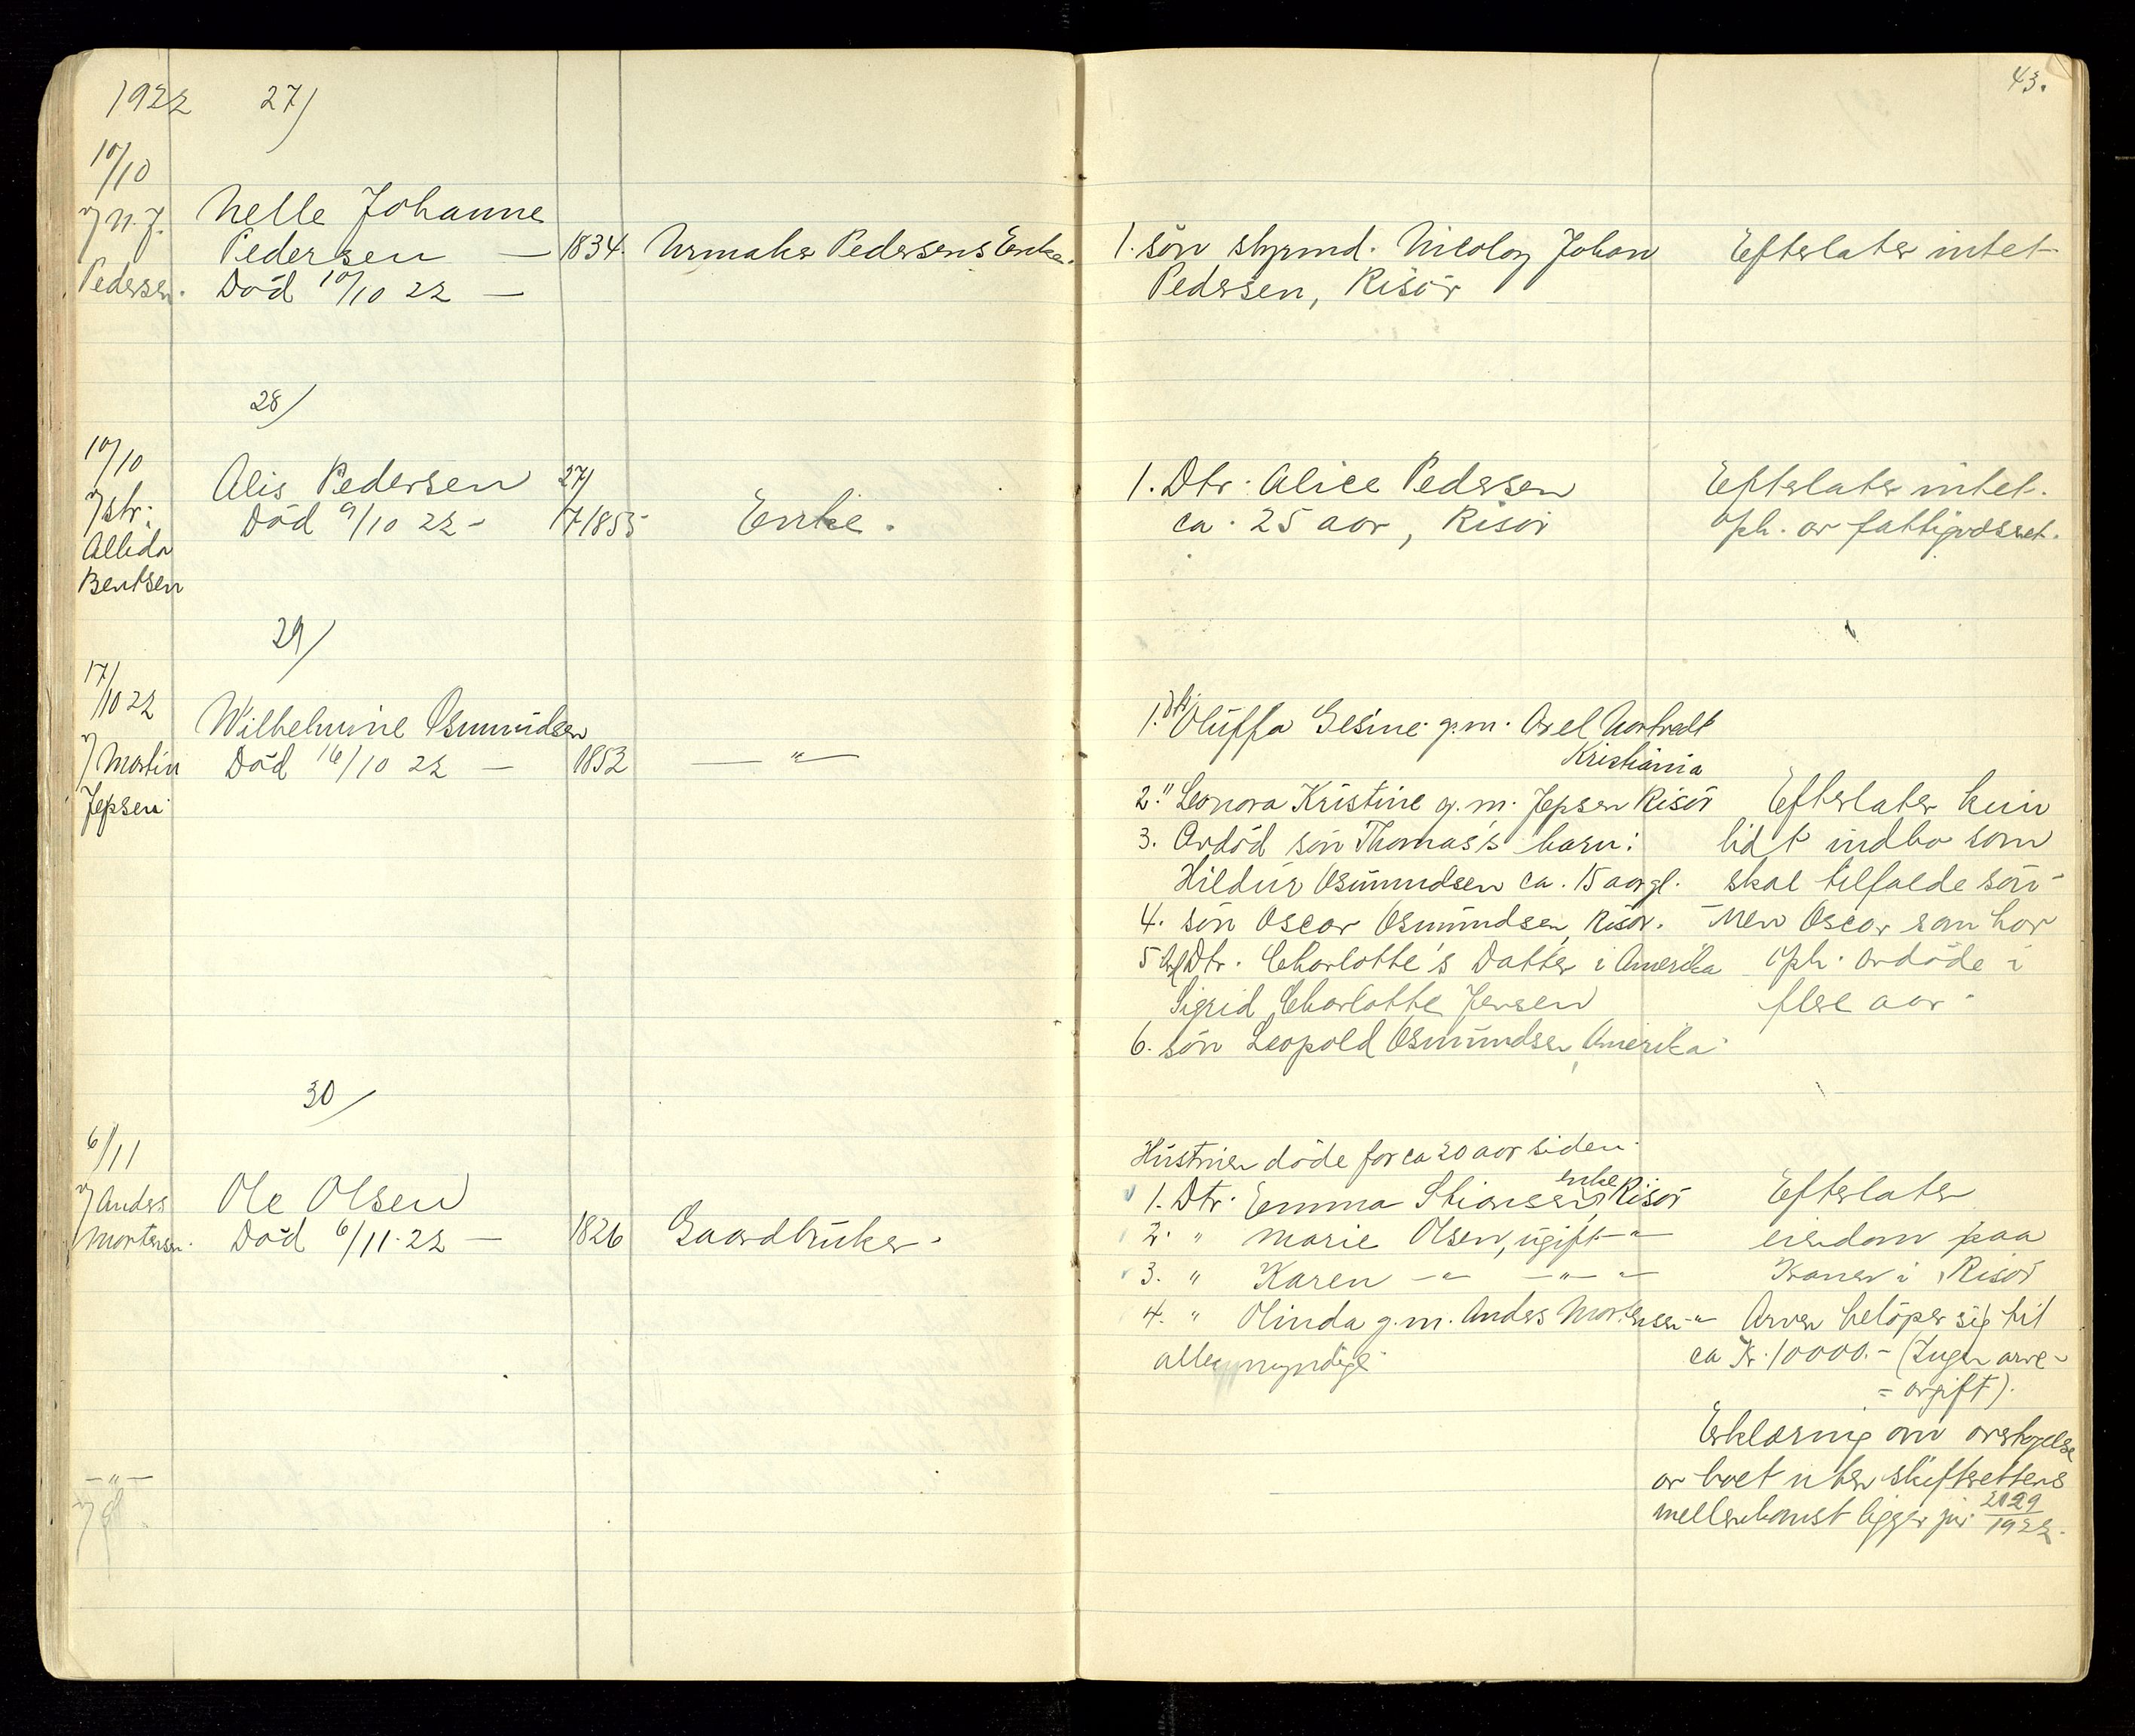 1922 27/
43.
10/10
v/ N. J. Pedersen.
Nelle Johanne
Pedersen — 1834. Urmaker Pedersens Enke.
Död 10/10 22 —
1. sön styrmd. Nicolay Johan
Pedersen, Risör
Efterlater intet
28/
10/10
v/ str:
Allida
Bentsen
Alis Pedersen 27/
Död 9/10 22 - 7 1855 Enke.
1. Dtr. Alice Pedersen
ca. 25 aar, Risör
Efterlater intet.
Oph. av fattigvæsenet.
29/
17/10 22
v/ Martin
Jepsen
Wilhelmine Osmundsen
Död 16/10 22 — 1853 — " —
1. Dtr Oluffa Gesine g.m. Axel
Kristiania
2. " Leonora Kristine g.m. Jepsen Risör
3. Avdöd sön Thomas's barn:
Hildur Osmundsen ca. 15 aar gl.
4. sön Oscar Osmundsen, Risör.
5 Dtr. Charlotte's Datter i Amerika
Sigrid Charlotte Jensen
6. sön Leopold Osmundsen, Amerika
Efterlater kun
lidt indbo som
skal tilfalde sön-
nen Oscar som har
oph. avdöde i
flere aar.
30/
6/11
v/ Anders
Mortensen.
Ole Olsen
Död 6/11. 22 — 1826 Gaardbruker.
Hustruen döde for ca 20 aar siden.
1. Dtr. Emma Stiansen, enke Risör
2. " Marie Olsen, ugift — " —
3. " Karen — " — — " — " —
4. " Olinda g.m. Anders Mortensen — " —
alle myndige
Efterlater
eiendom paa
Kranen i Risör
Arven belöper sig til
ca Kr. 10000.- (Ingen arve-
= avgift).
Erklæring om overtagelse
av boet uten skifterettens
mellemkomst ligger jnr. 2129/1922.
— " —
v/